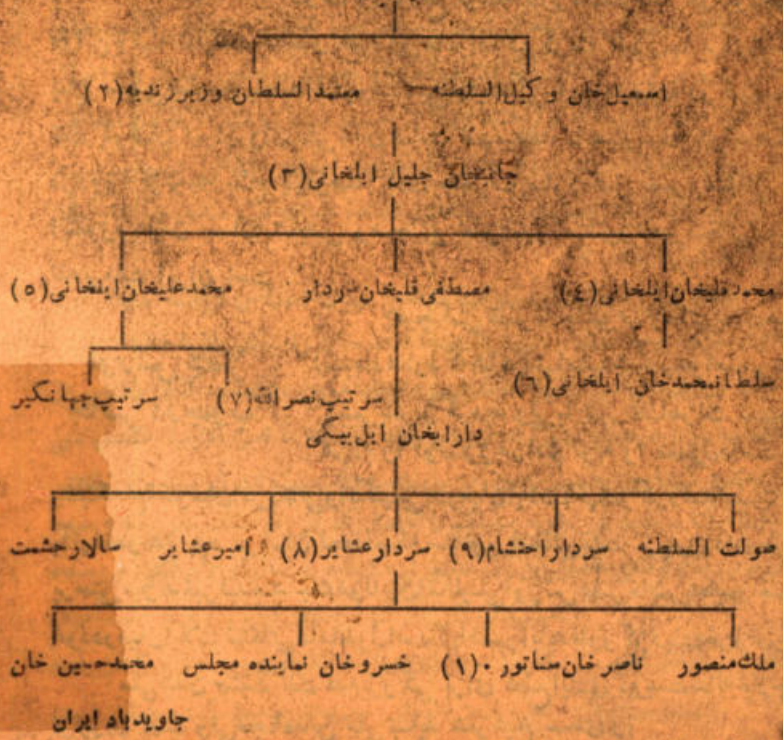 اسمعیل‌خان وکیل‌السلطنه معتمدالسلطان وزیر زندیه (۲)
جانیخان جلیل ایلخانی (۳)
محمدقلیخان ایلخانی (٤) مصطفی قلیخان سردار محمدعلیخان ایلخانی (۵)
سلطانمحمدخان ایلخانی (٦) سرتیپ نصرالله (۷) سرتیپ جهانگیر
دارابخان ایل‌بیگی
صولت السلطنه سردار احتشام (۹) سردار عشایر (۸) امیر عشایر سالار حشمت
ملك منصور ناصرخان سناتور ۰(۱) خسروخان نماینده مجلس محمدحسین خان
جاویدباد ایران